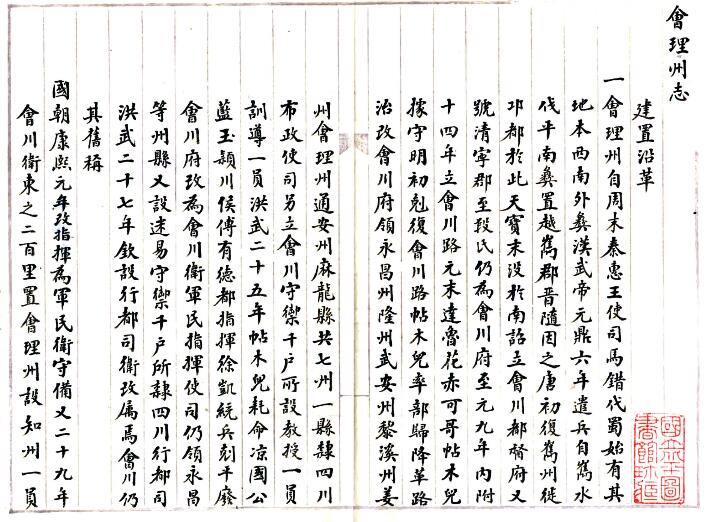 會理州志
建置沿革
一會理州自周末秦惠王使司馬錯伐蜀始有其
地本西南外彝漢武帝元鼎六年遣兵自嶲水
伐平南彝置越嶲郡晉隨因之唐初復嶲州徙
邛都於此天寶末没於南詔立會川都督府又
號清寧郡至段氏仍為會川府至元九年内附
十四年立會川路元末達魯花赤可哥帖木兒
據守明初剋復會川路帖木兒率部歸降革路
治改會川府領永昌州隆州武安州黎溪州姜
州會理州通安州麻龍縣共七州一縣隸四川
布政使司另立會川守禦千户所設教授一員
訓導一員洪武二十五年帖木兒耗命凉國公
藍玉頴川侯傅有德都指揮徐凱統兵剿平廢
會川府改為會川衛軍民指揮使司仍領永昌
等州縣又設迷易守禦千户所隸四川行都司
洪武二十七年欽設行都司衛改属焉會川仍
其舊稱
國朝康熙元年改指揮為軍民衛守備又二十九年
會川衛東之二百里置會理州設知州一員
國立北平圖
書館珍藏